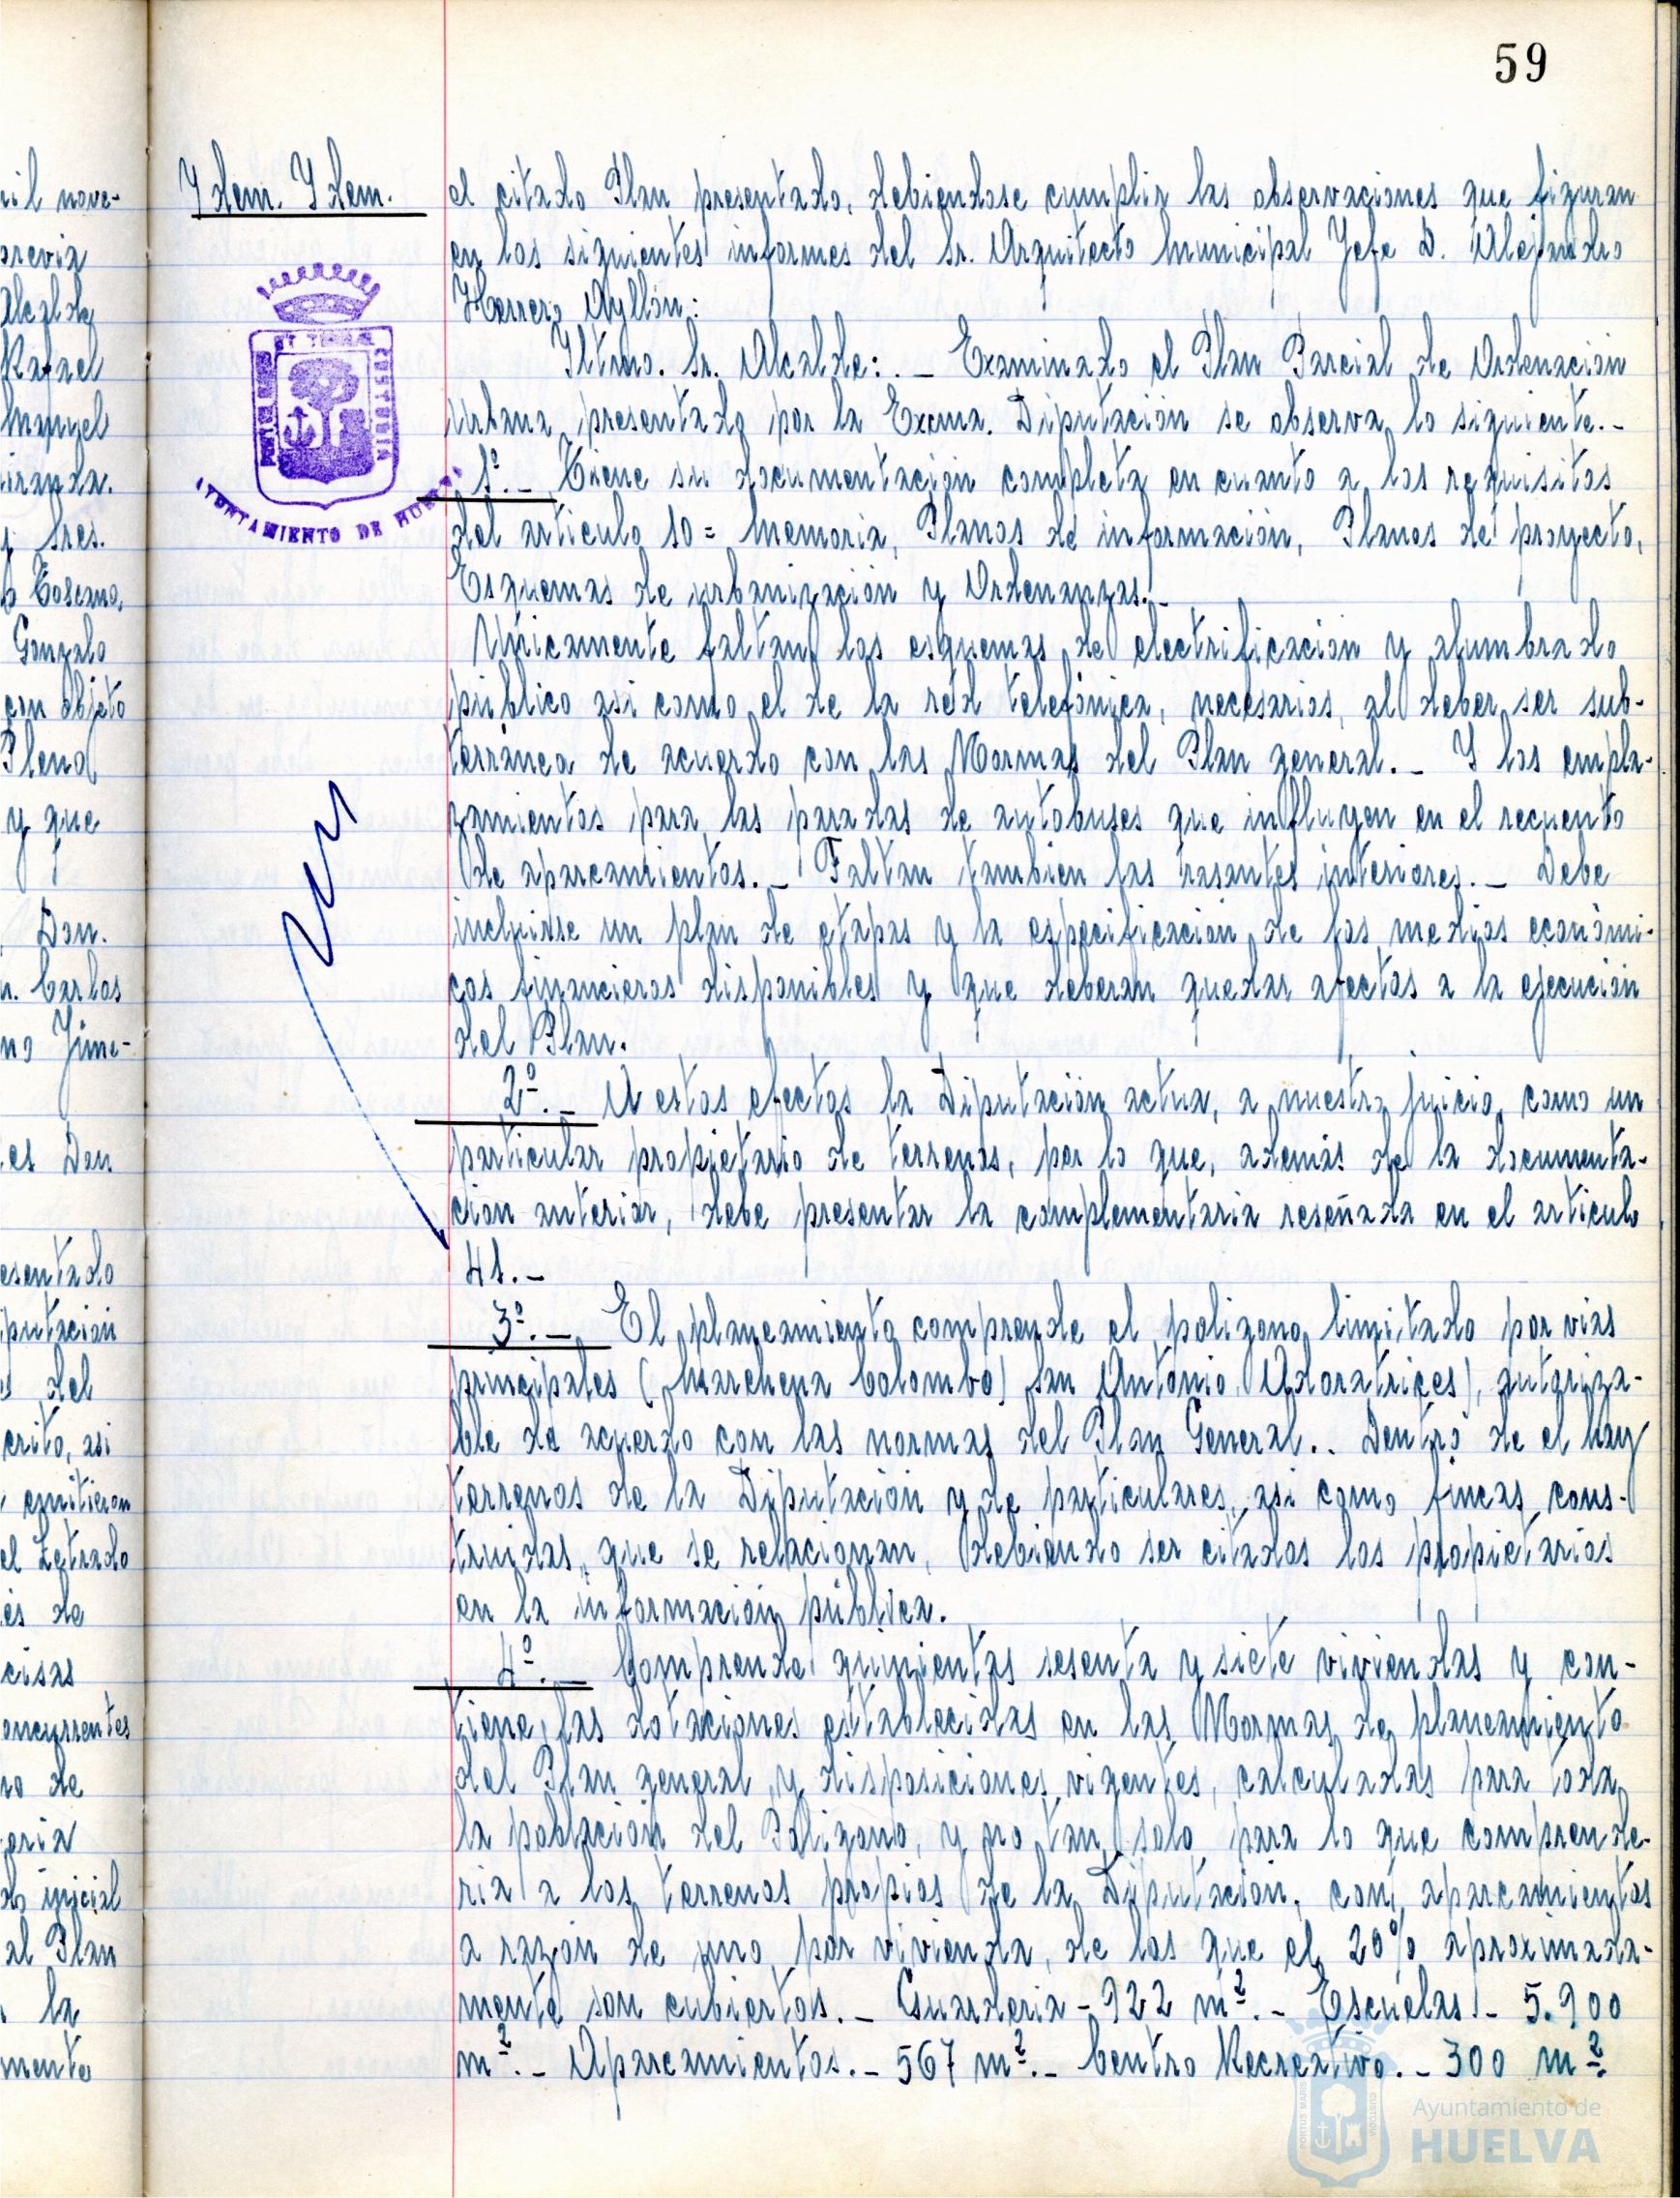 59
Idem. Idem.
el citado Plan presentado, debiendose cumplir las observaciones que figuran
en los siguientes informes del Sr. Arquitecto Municipal Jefe D. Alejandro
Herrero Ayllón:
Iltmo. Sr. Alcalde: . – Examinado el Plan Parcial de Ordenación
Urbana presentado por la Excma. Diputación se observa lo siguiente. –
1º. – Tiene su documentación completa en cuanto a los requisitos
del articulo 10 = Memoria, Planos de información, Planos de proyecto,
Esquemas de urbanización y Ordenanzas. –
Unicamente faltan los esquemas de electrificación y alumbrado
público asi como el de la red telefónica, necesarios, al deber ser sub-
terránea de acuerdo con las Normas del Plan general. – Y los empla-
zamientos para las paradas de autobuses que influyen en el recuento
de aparcamientos. – Faltan tambien las rasantes interiores. – Debe
incluirse un plan de etapas y la especificación de los medios económi-
cos financieros disponibles y que deberan quedar afectos a la ejecución
del Plan.
2º. – A estos efectos la Diputación actua, a nuestro juicio, como un
particular propietario de terrenos, por lo que, además de la documenta-
ción anterior, debe presentar la complementaria reseñada en el articulo
41. –
3º. – El planeamiento comprende el poligono limitado por vias
principales (Marchena Colombo, San Antonio, Adoratrices), autoriza-
ble de acuerdo con las normas del Plan General. . Dentro de el hay
terrenos de la Diputación y de particulares, asi como fincas cons-
truidas, que se relacionan, debiendo ser citados los propietarios
en la información pública.
4º. – Comprende quinientas sesenta y siete viviendas y con-
tiene, las dotaciones establecidas en las Normas de planeamiento
del Plan general y disposiciones vigentes, calculadas para toda
la población del Poligono, y no tan solo para lo que comprende-
ria a los terrenos propios de la Diputación, con aparcamientos
a razón de uno por vivienda, de los que el 20% aproximada-
mente son cubiertos. – Guarderia – 922 m². – Escuelas. – 5.900
m². – Aparcamientos. – 567 m². – Centro Recreativo. – 300 m².
AYUNTAMIENTO DE HUELVA
Ayuntamiento de
HUELVA